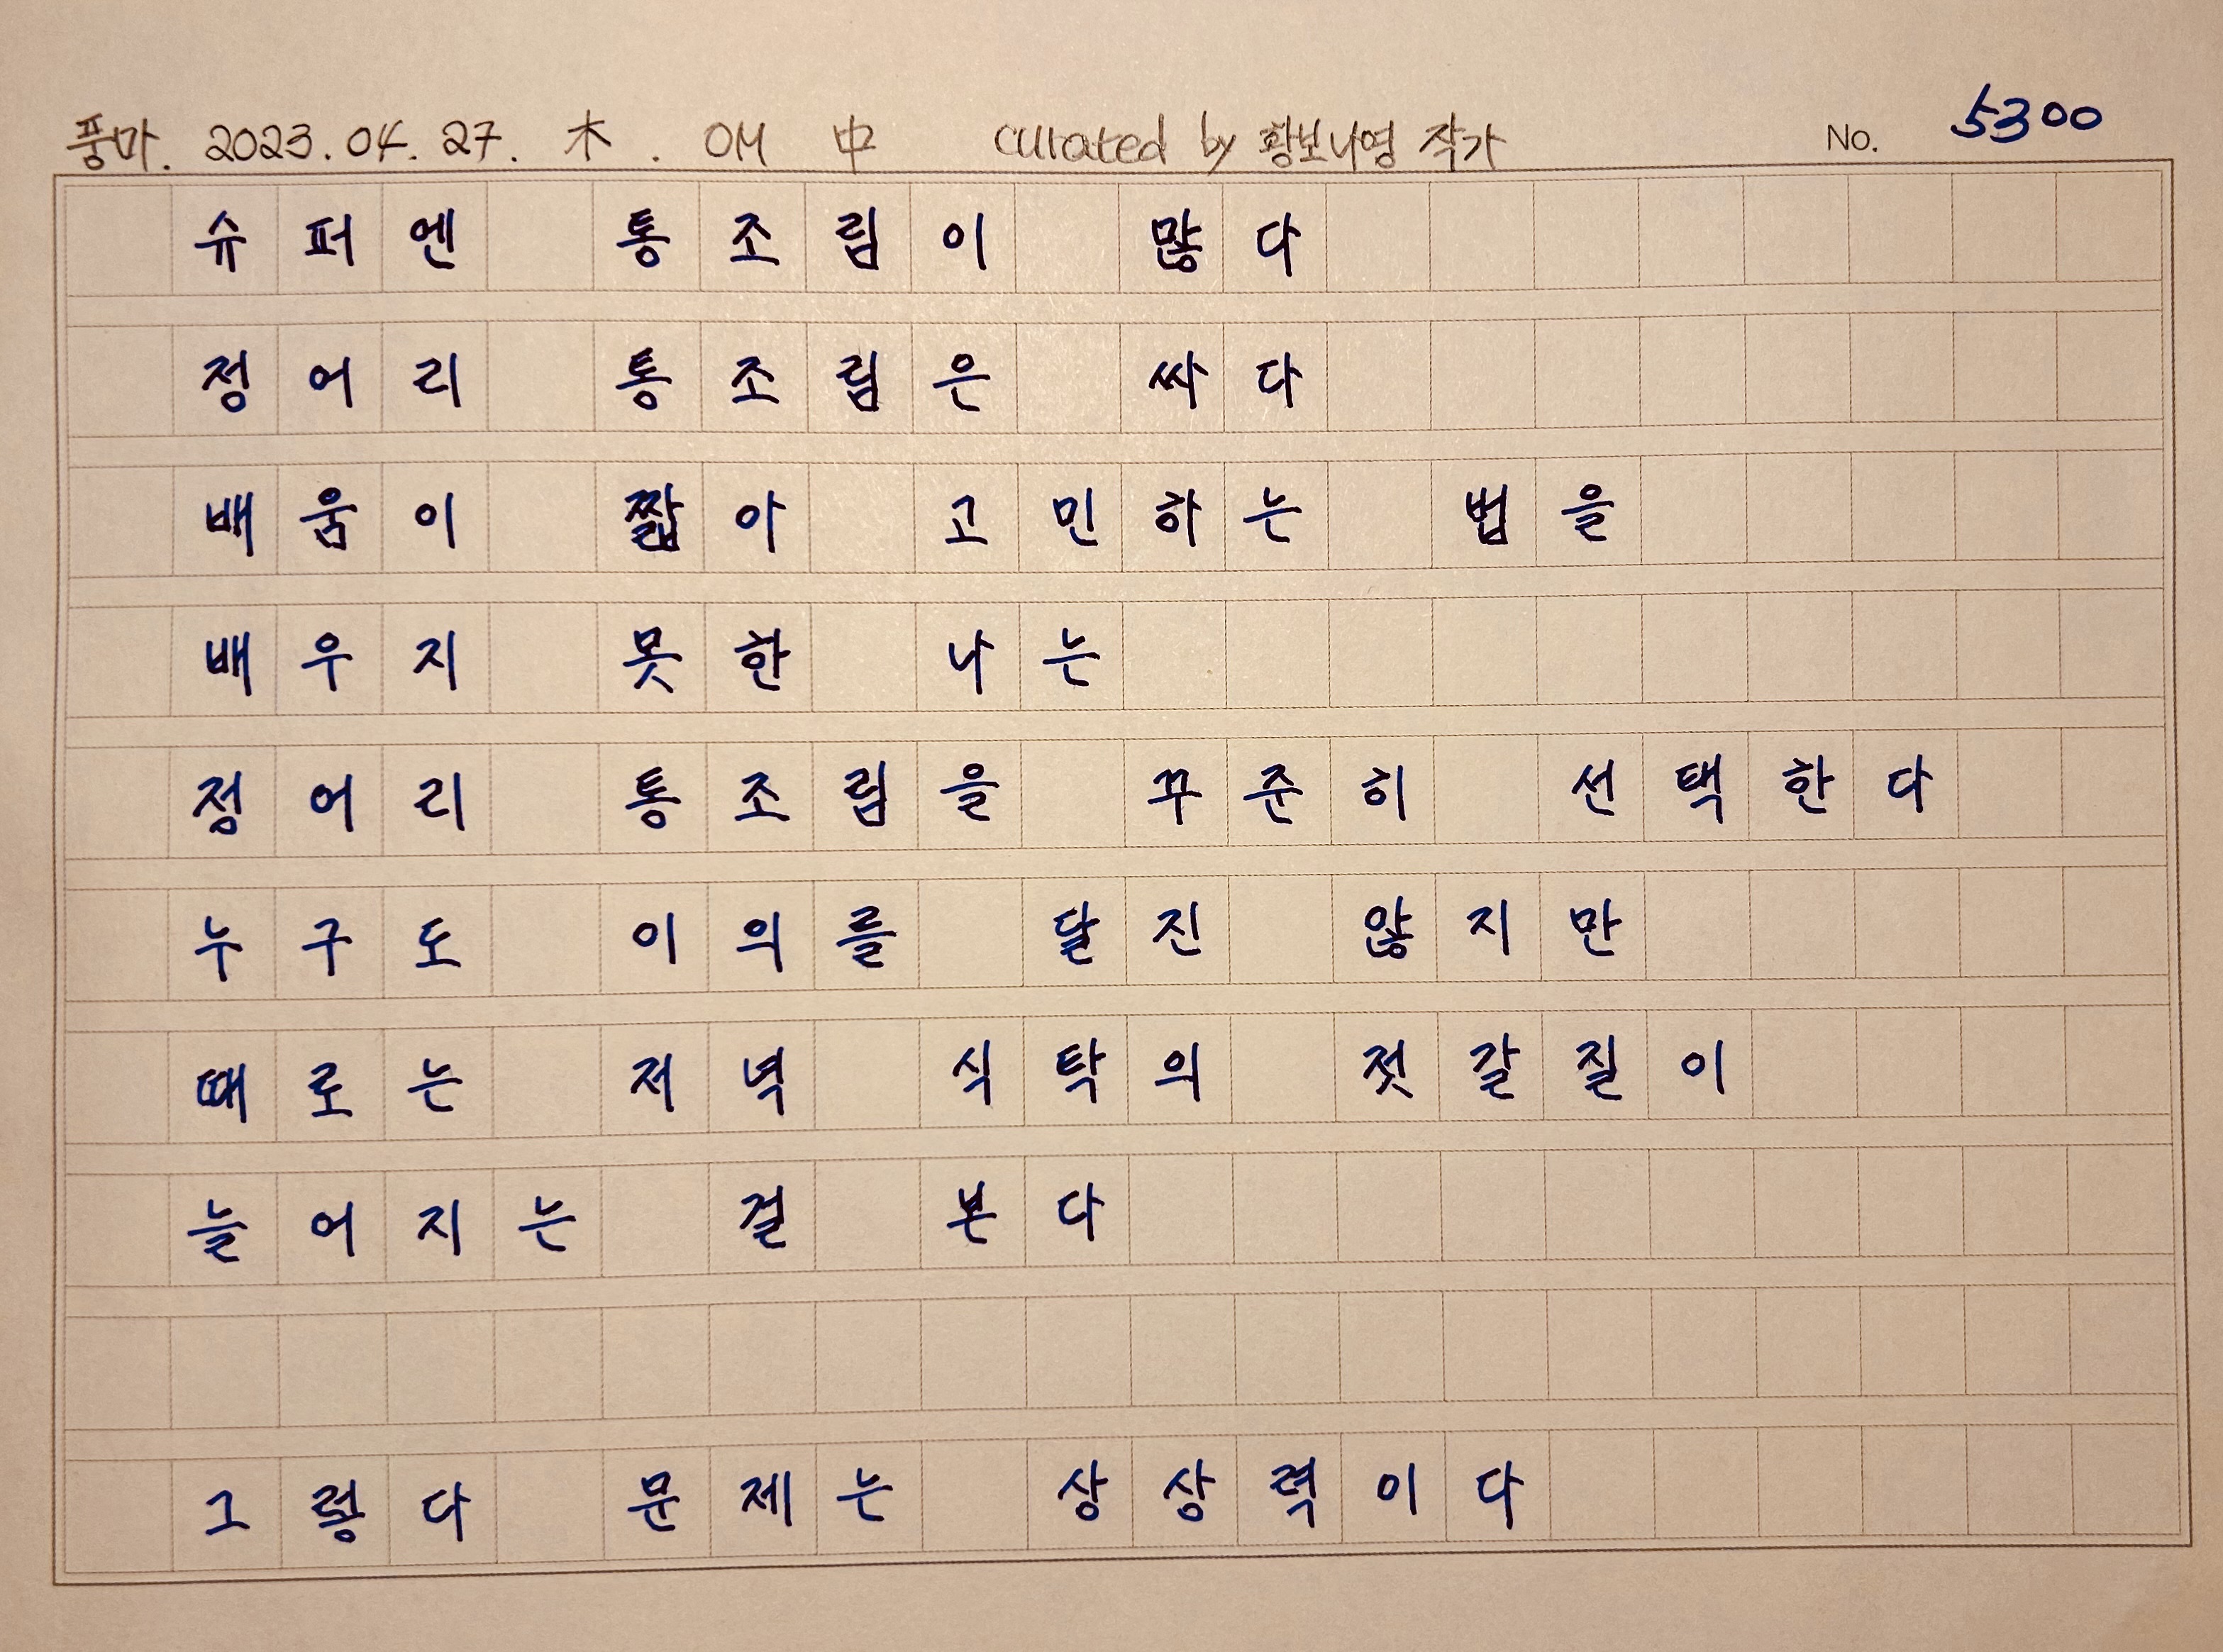 풍마. 2023. 04. 27. 木. OM 中 curated by 황보나영 작가 No. 5300
슈퍼엔 통조림이 많다
정어리 통조림은 싸다
배움이 짧아 고민하는 법을
배우지 못한 나는
정어리 통조림을 꾸준히 선택한다
누구도 이의를 달진 않지만
때로는 저녁 식탁의 젓갈질이
늘어지는 걸 본다
그렇다 문제는 상상력이다